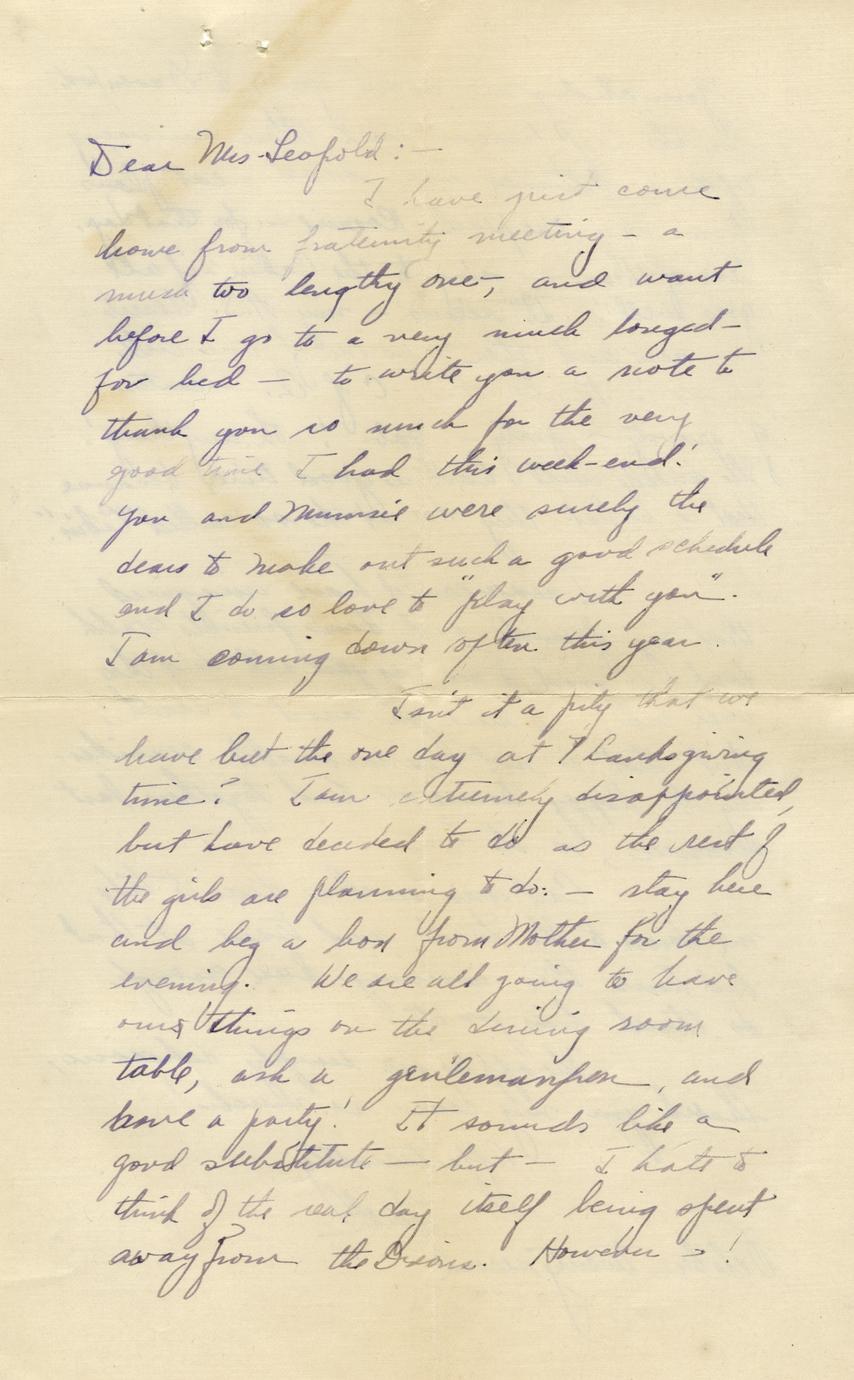 Dear Mrs. Leopold: —
I have just come
home from fraternity meeting - a
much too lengthy one -, and want
before I go to a very much longed-
for bed — to write you a note to
thank you so much for the very
good time I had this week-end!
You and Mumsie were surely the
dears to make out such a good schedule
and I do so love to "play with you".
I am coming down often this year.
Isn't it a pity that we
have but the one day at Thanksgiving
time? I am extremely disappointed,
but have decided to do as the rest of
the girls are planning to do: — stay here
and beg a box from Mother for the
evening. We are all going to have
our things on the dining room
table, ask a gentleman, and
have a party! It sounds like a
good substitute — but — I hate to
think of the real day itself being spent
away from the Dixons. However - !